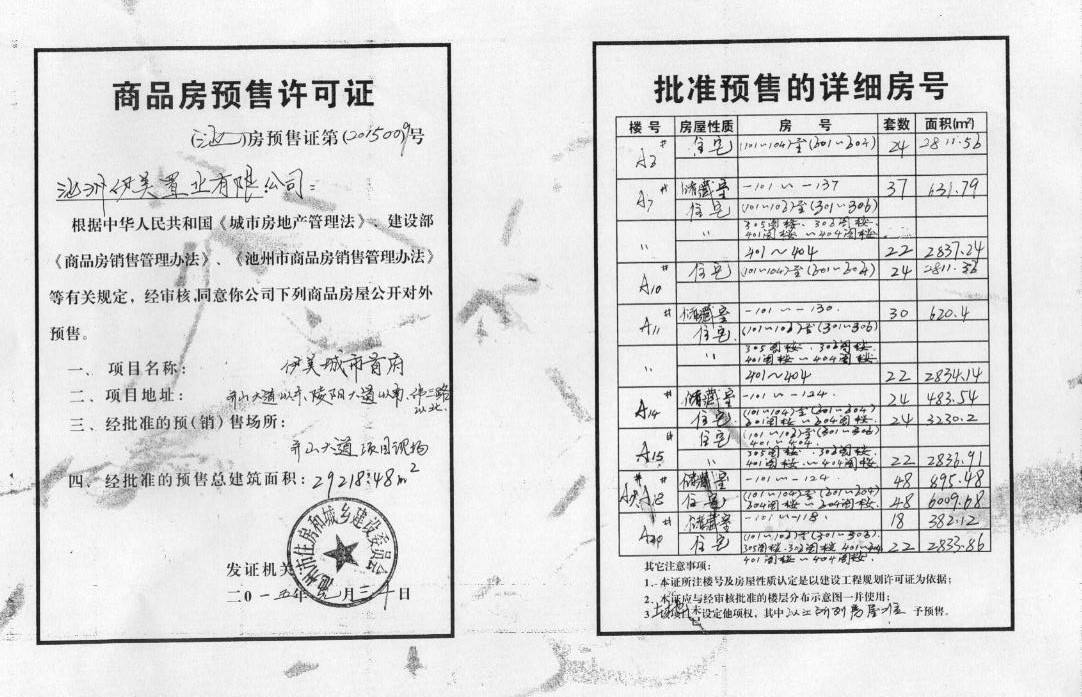 商品房预售许可证
(池)房预售证第(2015009)号
池洲伊美置业有限公司:
根据中华人民共和国《城市房地产管理法》、建设部
《商品房销售管理办法》、《池州市商品房销售管理办法》
等有关规定，经审核,同意你公司下列商品房屋公开对外
预售。
一、项目名称: 伊美城市首府
二、项目地址: 齐山大道以东、陵阳大道以南、纬三路
以北
三、经批准的预(销)售场所:
齐山大道项目现场
四、经批准的预售总建筑面积: 29218.48m²
池州市住房和城乡建设委员会
发证机关
二0一五年 月三十日
批准预售的详细房号
楼号 房屋性质 房号 套数 面积(m²)
A3# 住宅 (101~104)至(601~604) 24 2811.56
A7# 储藏室 -101~-137 37 631.79
住宅 (101~106)至(301~306)
305阁楼、306阁楼、
401阁楼~404阁楼
〃 401~404 22 2837.24
A10# 住宅 (101~104)至(601~604) 24 2811.56
A11# 储藏室 -101~-130. 30 620.4
住宅 (101~106)至(301~306)
〃 305阁楼、306阁楼
401阁楼~404阁楼
401~404 22 2834.14
A14# 储藏室 -101~-124. 24 483.54
住宅 24 3230.2
A15# 住宅 (101~106)至(301~306)
401~404.
〃 305阁楼、306阁楼
401阁楼~404阁楼 22 2836.91
A18# 储藏室 -101~-124 48 895.48
住宅 48 6009.68
A20# 储藏室 -101~-118. 18 382.12
住宅 (101~106)至(301~306).
305阁楼.306阁楼 401~404 22 2833.86
401阁楼~404阁楼
其它注意事项:
1、本证所注楼号及房屋性质认定是以建设工程规划许可证为依据;
2、本证应与经审核批准的楼层分布示意图一并使用;
3、该项目土地未设定他项权，其中以上所列房屋准予预售。